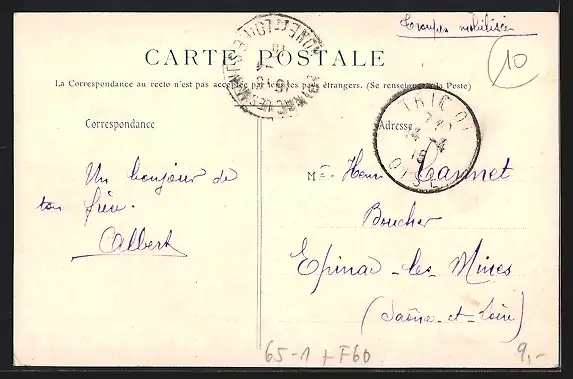 Troupes mobilisées
10
CARTE POSTALE
La Correspondance au recto n'est pas acceptée par tous les pays étrangers. (Se renseigner à la Poste)
Correspondance
Adresse
TRICO
14-4
15
OISE
Un bonjour de
ton frère.
Albert
M Henri
Boucher
Epinac-les-Mines
(Saône-et-Loire)
65-1 + F60
9,-